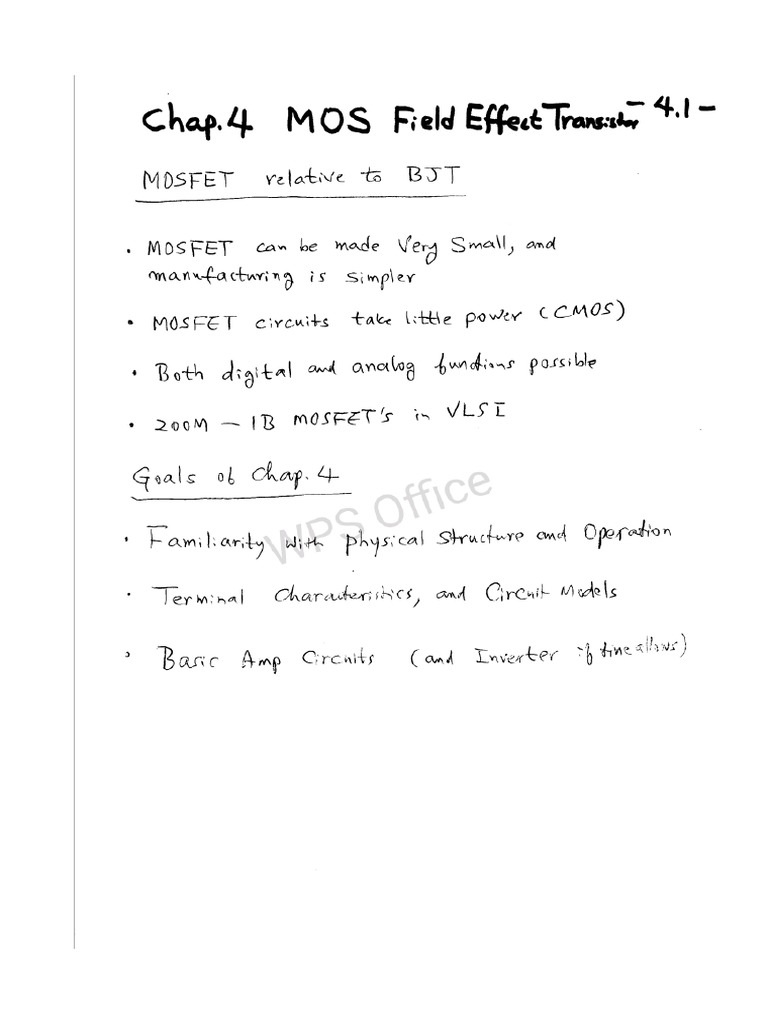 Chap.4 MOS Field Effect Transistor - 4.1 -
MOSFET relative to BJT
• MOSFET can be made Very Small, and
manufacturing is simpler
• MOSFET circuits take little power (CMOS)
• Both digital and analog functions possible
• 200M - 1B MOSFET's in VLSI
Goals of Chap. 4
WPS Office
• Familiarity with physical structure and Operation
• Terminal Characteristics, and Circuit Models
• Basic Amp Circuits (and Inverter if time allows)